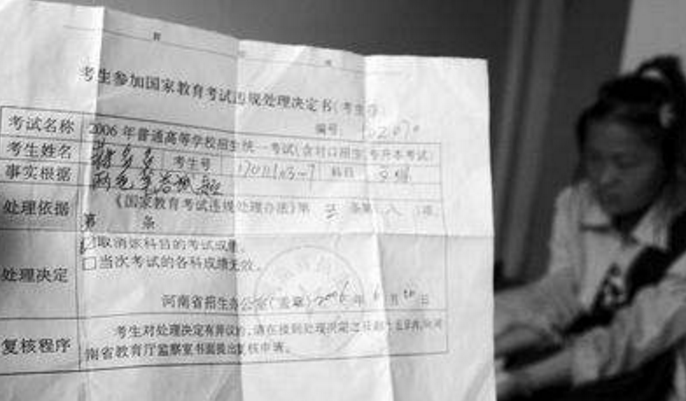 考生参加国家教育考试违规处理决定书(考生存)
编号:
考试名称 2006年普通高等学校招生统一考试(含对口招生、专升本考试)
考生姓名 考生号 科目
事实根据 两色笔答题
处理依据 《国家教育考试违规处理办法》第 条第 八 项、
第 条
处理决定 ☑取消该科目的考试成绩。
☐当次考试的各科成绩无效。
河南省招生办公室(盖章)2006年6月20日
复核程序 考生对处理决定有异议的,请在接到处理决定之日起十五日内,向河
南省教育厅监察室书面提出复核申请。